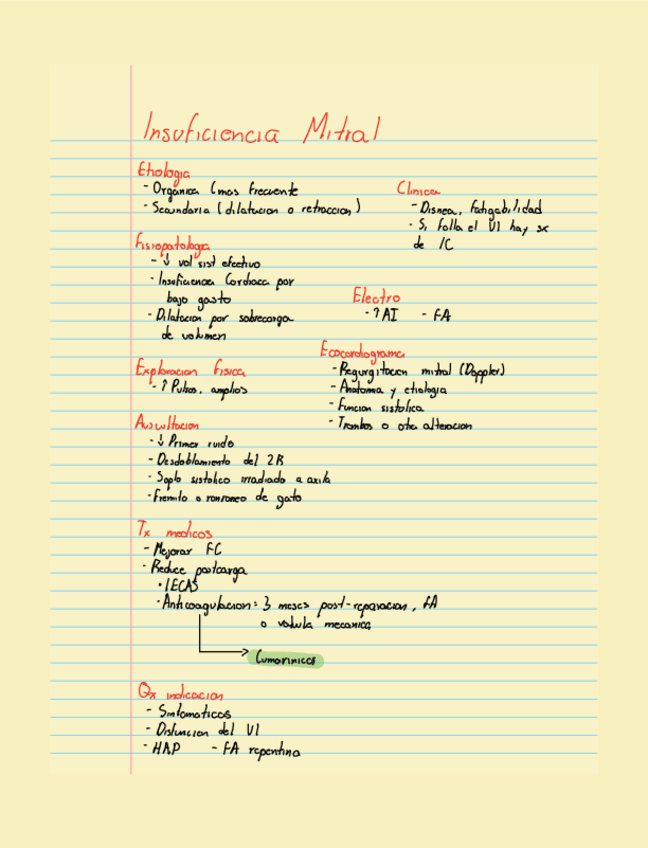 Insuficiencia Mitral
Etiologia
- Organica (mas frecuente
- Secundaria (dilatacion o retraccion)
Clinica
- Disnea, Fatigabilidad
- Si falla el VI hay sx
de IC
Fisiopatologia
- ↓ vol sist efectivo
- Insuficiencia Cardiaca por
bajo gasto
- Dilatacion por sobrecarga
de volumen
Electro
- ↑ AI - FA
Ecocardiograma
- Regurgitacion mitral (Doppler)
- Anatomia y etiologia
- Funcion sistolica
- Trombos o otra alteracion
Exploracion Fisica
- ↑ Pulsos, amplios
Auscultacion
- ↓ Primer ruido
- Desdoblamiento del 2R
- Soplo sistolico irradiado a axila
- Fremito o ronroneo de gato
Tx medicos
- Mejorar FC
- Reduce postcarga
• IECAS
• Anticoagulacion: 3 meses post-reparacion, FA
o valvula mecanica
Cumarinicos
Qx indicacion
- Sintomaticos
- Disfuncion del VI
- HAP - FA repentina